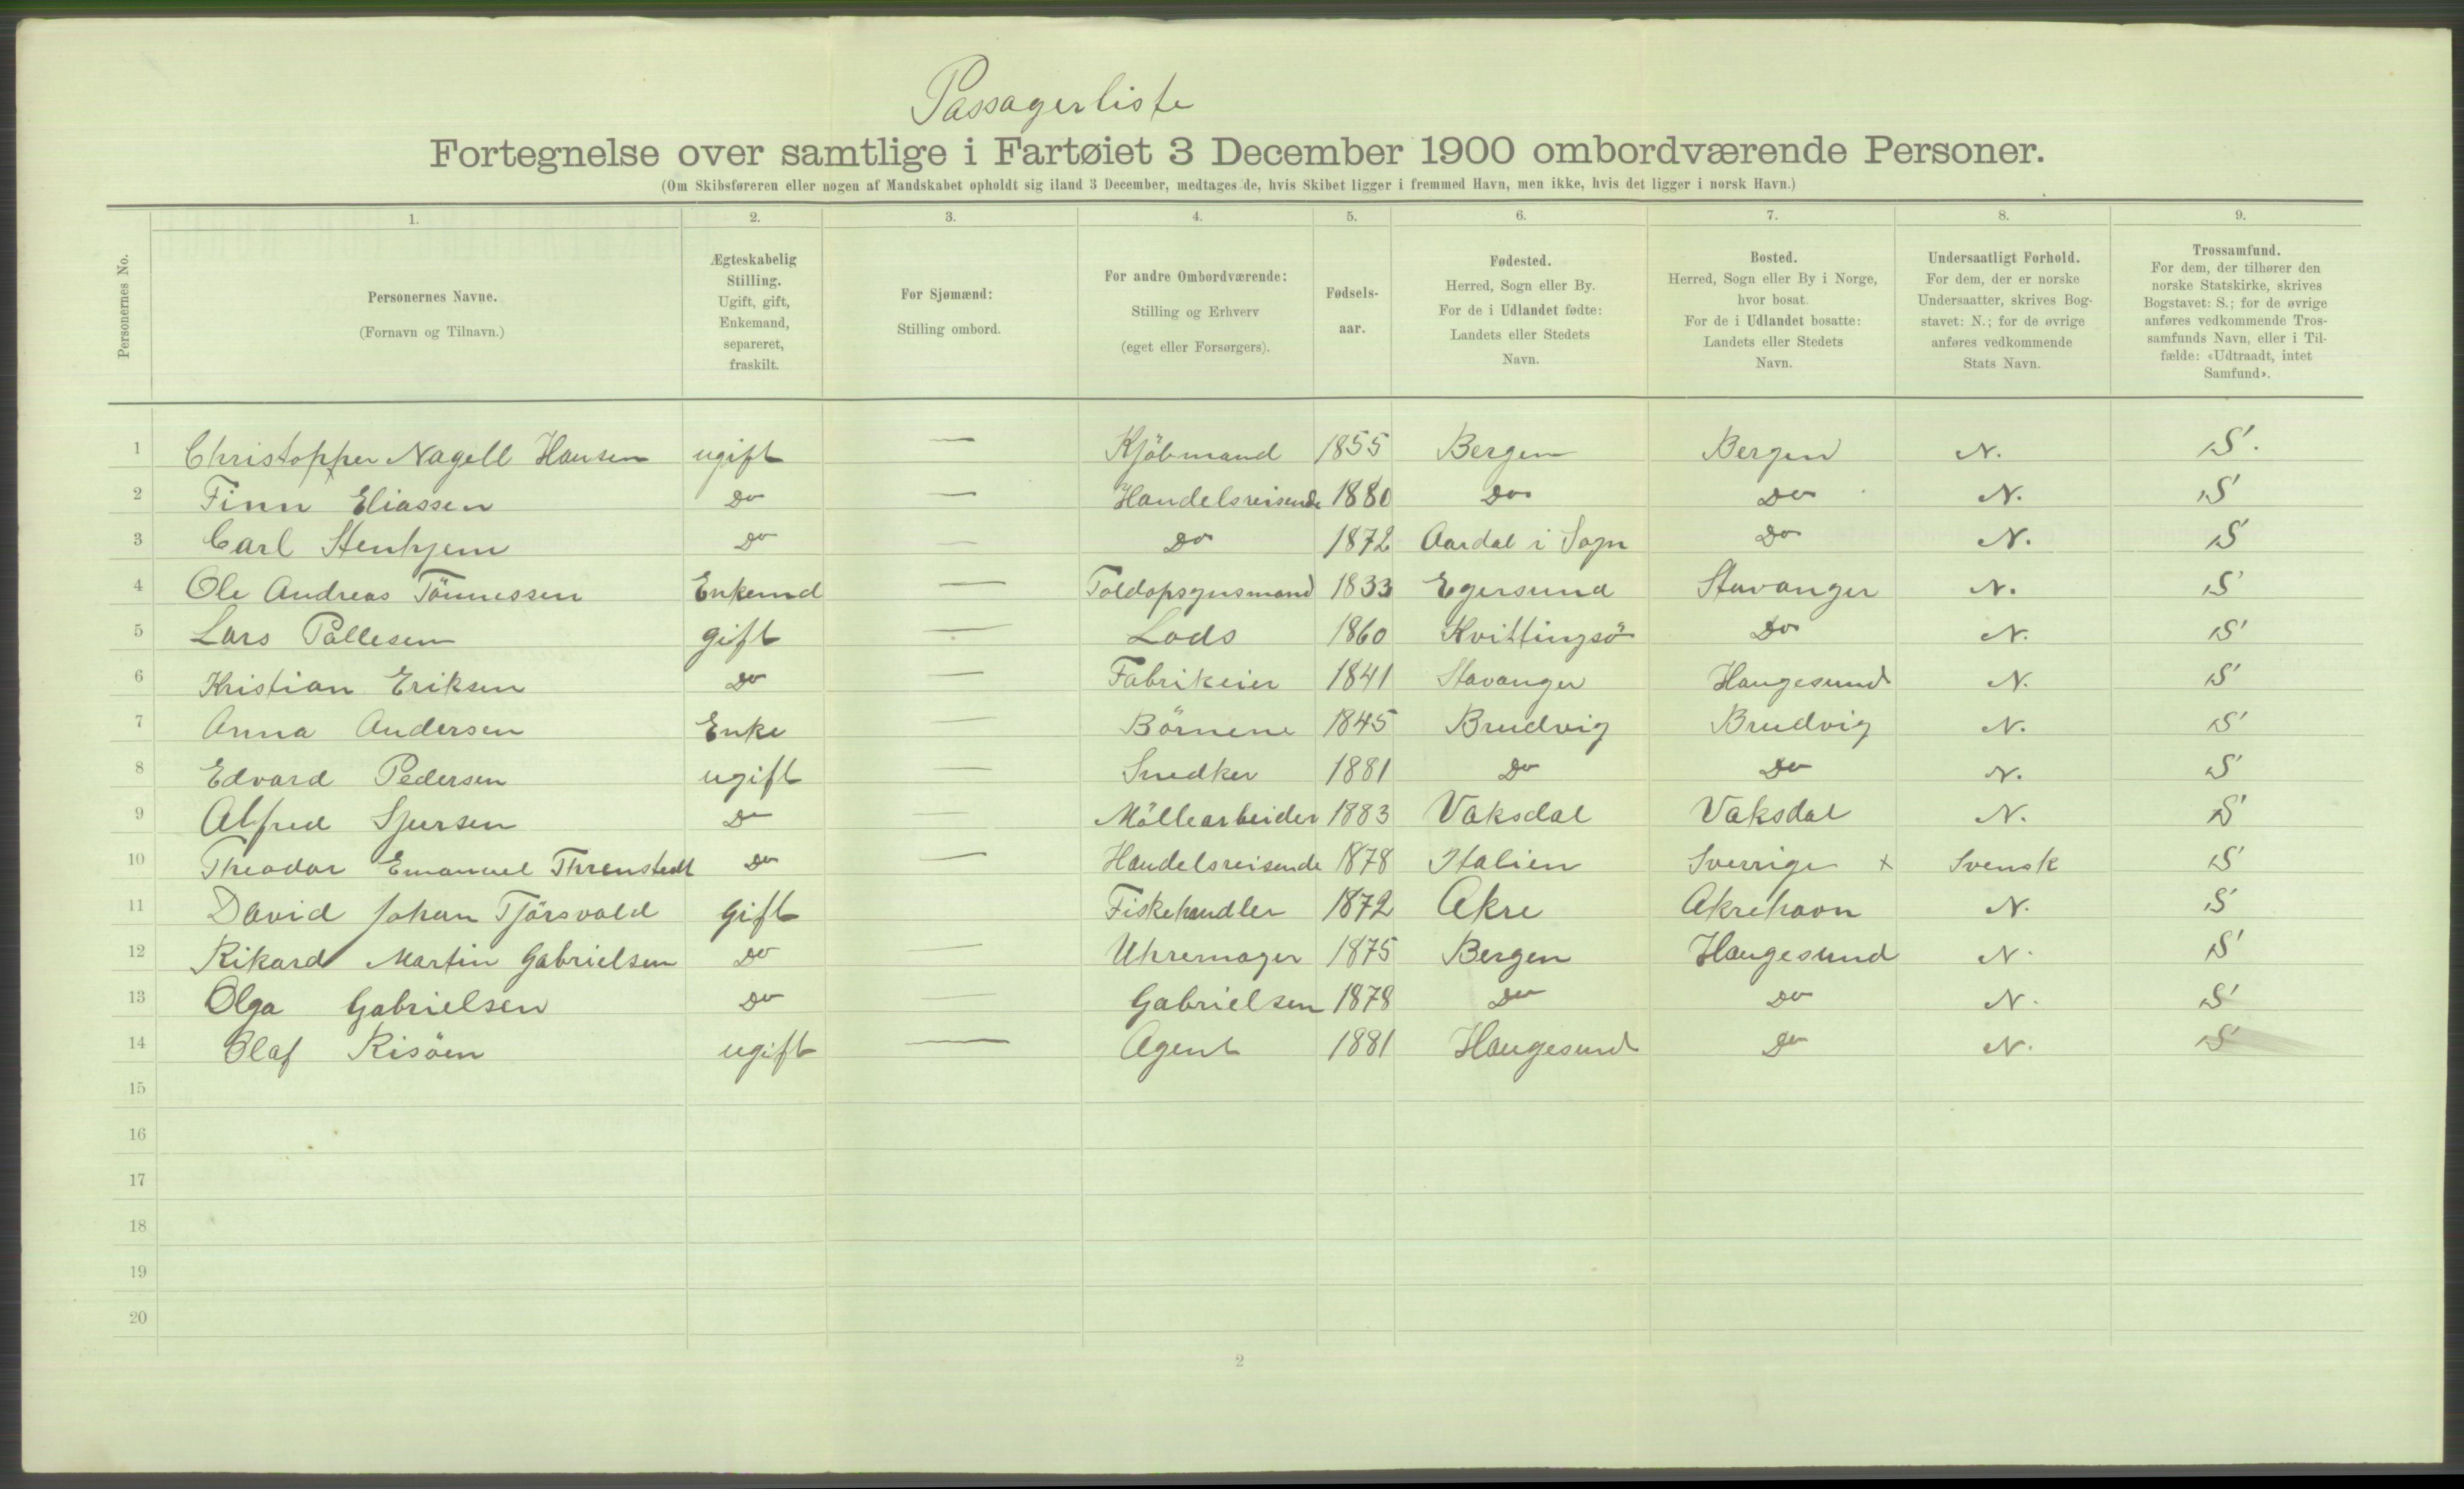 Passagerliste
Fortegnelse over samtlige i Fartøiet 3 December 1900 ombordværende Personer.
(Om Skibsføreren eller nogen af Mandskabet opholdt sig iland 3 December, medtages de, hvis Skibet ligger i fremmed Havn, men ikke, hvis det ligger i norsk Havn.)
Personernes No.
1. 2. 3. 4. 5. 6. 7. 8. 9.
Personernes Navne.
(Fornavn og Tilnavn.)
Ægteskabelig
Stilling.
Ugift, gift,
Enkemand,
separeret,
fraskilt.
For Sjømænd:
Stilling ombord.
For andre Ombordværende:
Stilling og Erhverv
(eget eller Forsørgers).
Fødsels-
aar.
Fødested.
Herred, Sogn eller By.
For de i Udlandet fødte:
Landets eller Stedets
Navn.
Bosted.
Herred, Sogn eller By i Norge,
hvor bosat.
For de i Udlandet bosatte:
Landets eller Stedets
Navn.
Undersaatligt Forhold.
For dem, der er norske
Undersaatter, skrives Bog-
stavet: N.; for de øvrige
anføres vedkommende
Stats Navn.
Trossamfund.
For dem, der tilhører den
norske Statskirke, skrives
Bogstavet: S.; for de øvrige
anføres vedkommende Tros-
samfunds Navn, eller i Til-
fælde: «Udtraadt, intet
Samfund».
1 Christopher Nagell Hansen ugift — Kjöbmand 1855 Bergen Bergen N. S.
2 Finn Eliassen Do — Handelsreisende 1880 Do Do N. S
3 Carl Stenhjem Do — Do 1872 Aardal i Sogn Do N. S
4 Ole Andreas Tönnessen Enkemd — Toldopsynsmand 1833 Egersund Stavanger N. S
5 Lars Pallesen gift — Lods 1860 Kvittingsö Do N. S
6 Kristian Eriksen Do — Fabrikeier 1841 Stavanger Haugesund N. S
7 Anna Andersen Enke — Börnene 1845 Brudvig Brudvig N. S
8 Edvard Pedersen ugift — Snedker 1881 Do Do N. S
9 Alfred Sjursen Do — Möllearbeider 1883 Vaksdal Vaksdal N. S
10 Theodor Emanuel Threnstedt Do — Handelsreisende 1878 Italien Sverrige x Svensk S
11 David Johan Tjörsvold Gift — Fiskehandler 1872 Akre Akrehavn N. S
12 Rikard Martin Gabrielsen Do — Uhremager 1875 Bergen Haugesund N. S
13 Olga Gabrielsen Do — Gabrielsen 1878 Do Do N. S
14 Olaf Risöen ugift — Agent 1881 Haugesund Do N. S
15
16
17
18
19
20
2